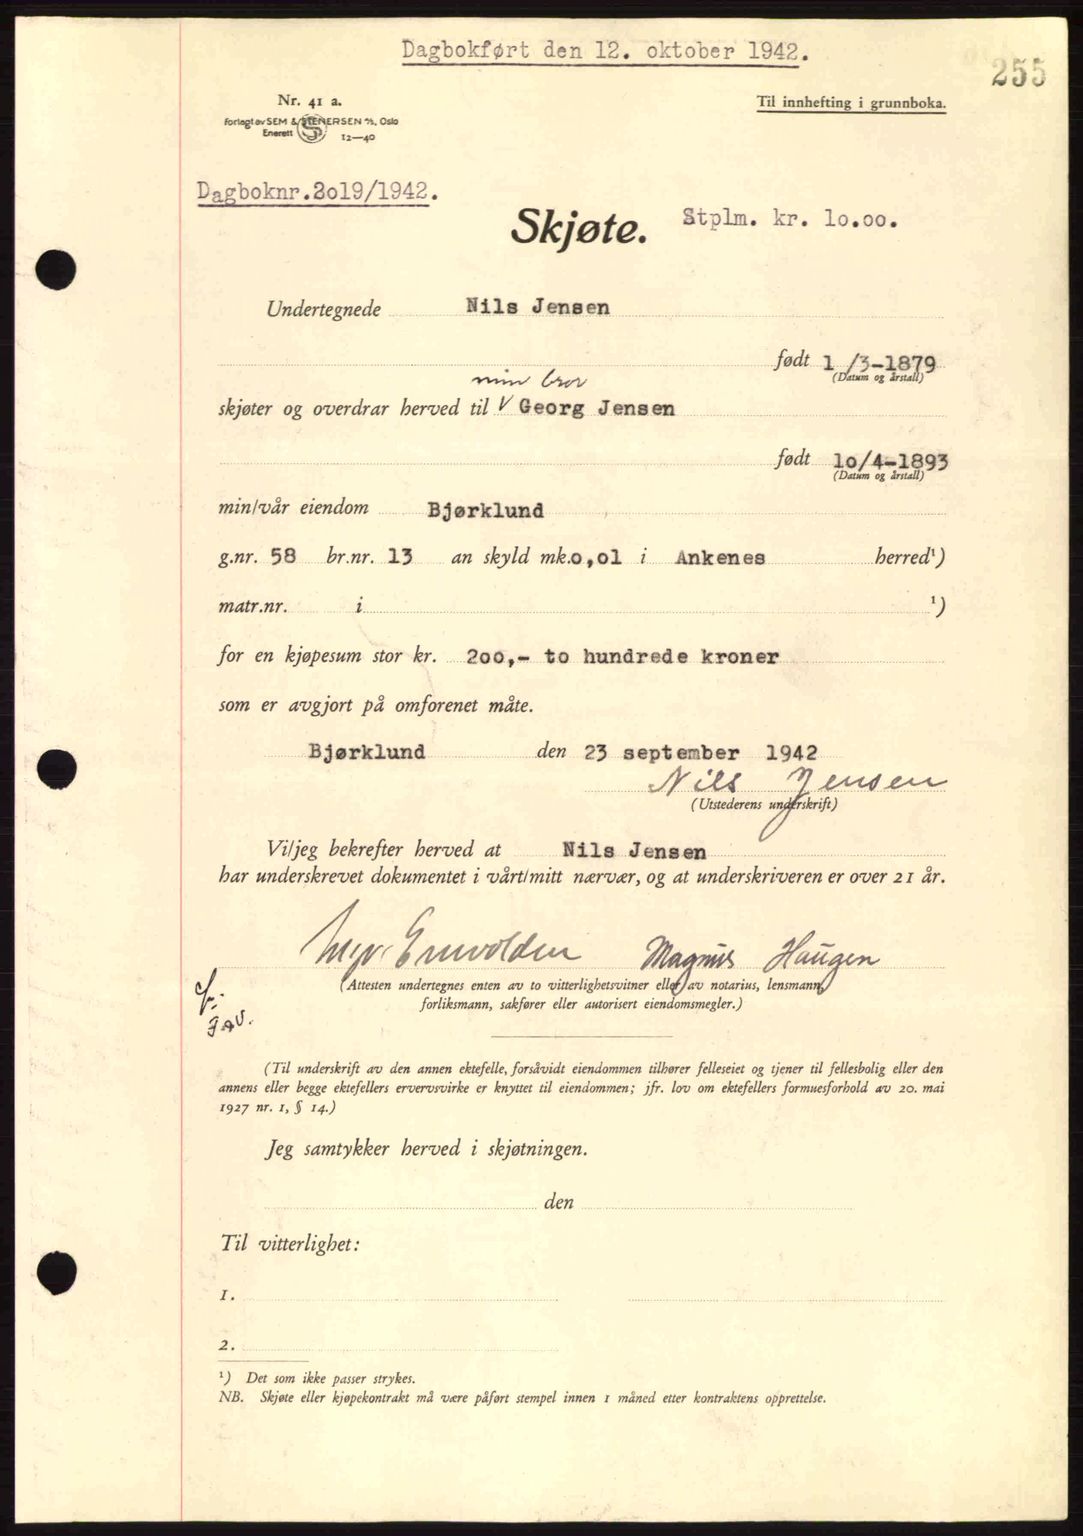 Dagbokført den 12. oktober 1942.
255
Nr. 41 a.
Til innhefting i grunnboka.
Forlagt av SEM & STENERSEN A/S, Oslo
Enerett 12—40
Dagboknr.2019/1942.
Skjøte. Stplm. kr. 10.00.
Undertegnede Nils Jensen
født 1 /3-1879
(Datum og årstall)
min bror
skjøter og overdrar herved til V Georg Jensen
født 10/4-1893
(Datum og årstall)
min/vår eiendom Bjørklund
g.nr. 58 br.nr. 13 an skyld mk.0,01 i Ankenes herred¹)
matr.nr. i ¹)
for en kjøpesum stor kr. 200,- to hundrede kroner
som er avgjort på omforenet måte.
Bjørklund den 23 september 1942
Nils Jensen
(Utstederens underskrift)
Vi/jeg bekrefter herved at Nils Jensen
har underskrevet dokumentet i vårt/mitt nærvær, og at underskriveren er over 21 år.
Magnus Haugen
(Attesten undertegnes enten av to vitterlighetsvitner eller av notarius, lensmann,
forliksmann, sakfører eller autorisert eiendomsmegler.)
(Til underskrift av den annen ektefelle, forsåvidt eiendommen tilhører felleseiet og tjener til fellesbolig eller den
annens eller begge ektefellers ervervsvirke er knyttet til eiendommen; jfr. lov om ektefellers formuesforhold av 20. mai
1927 nr. 1, § 14.)
Jeg samtykker herved i skjøtningen.
den
Til vitterlighet:
1.
2.
¹) Det som ikke passer strykes.
NB. Skjøte eller kjøpekontrakt må være påført stempel innen 1 måned etter kontraktens opprettelse.